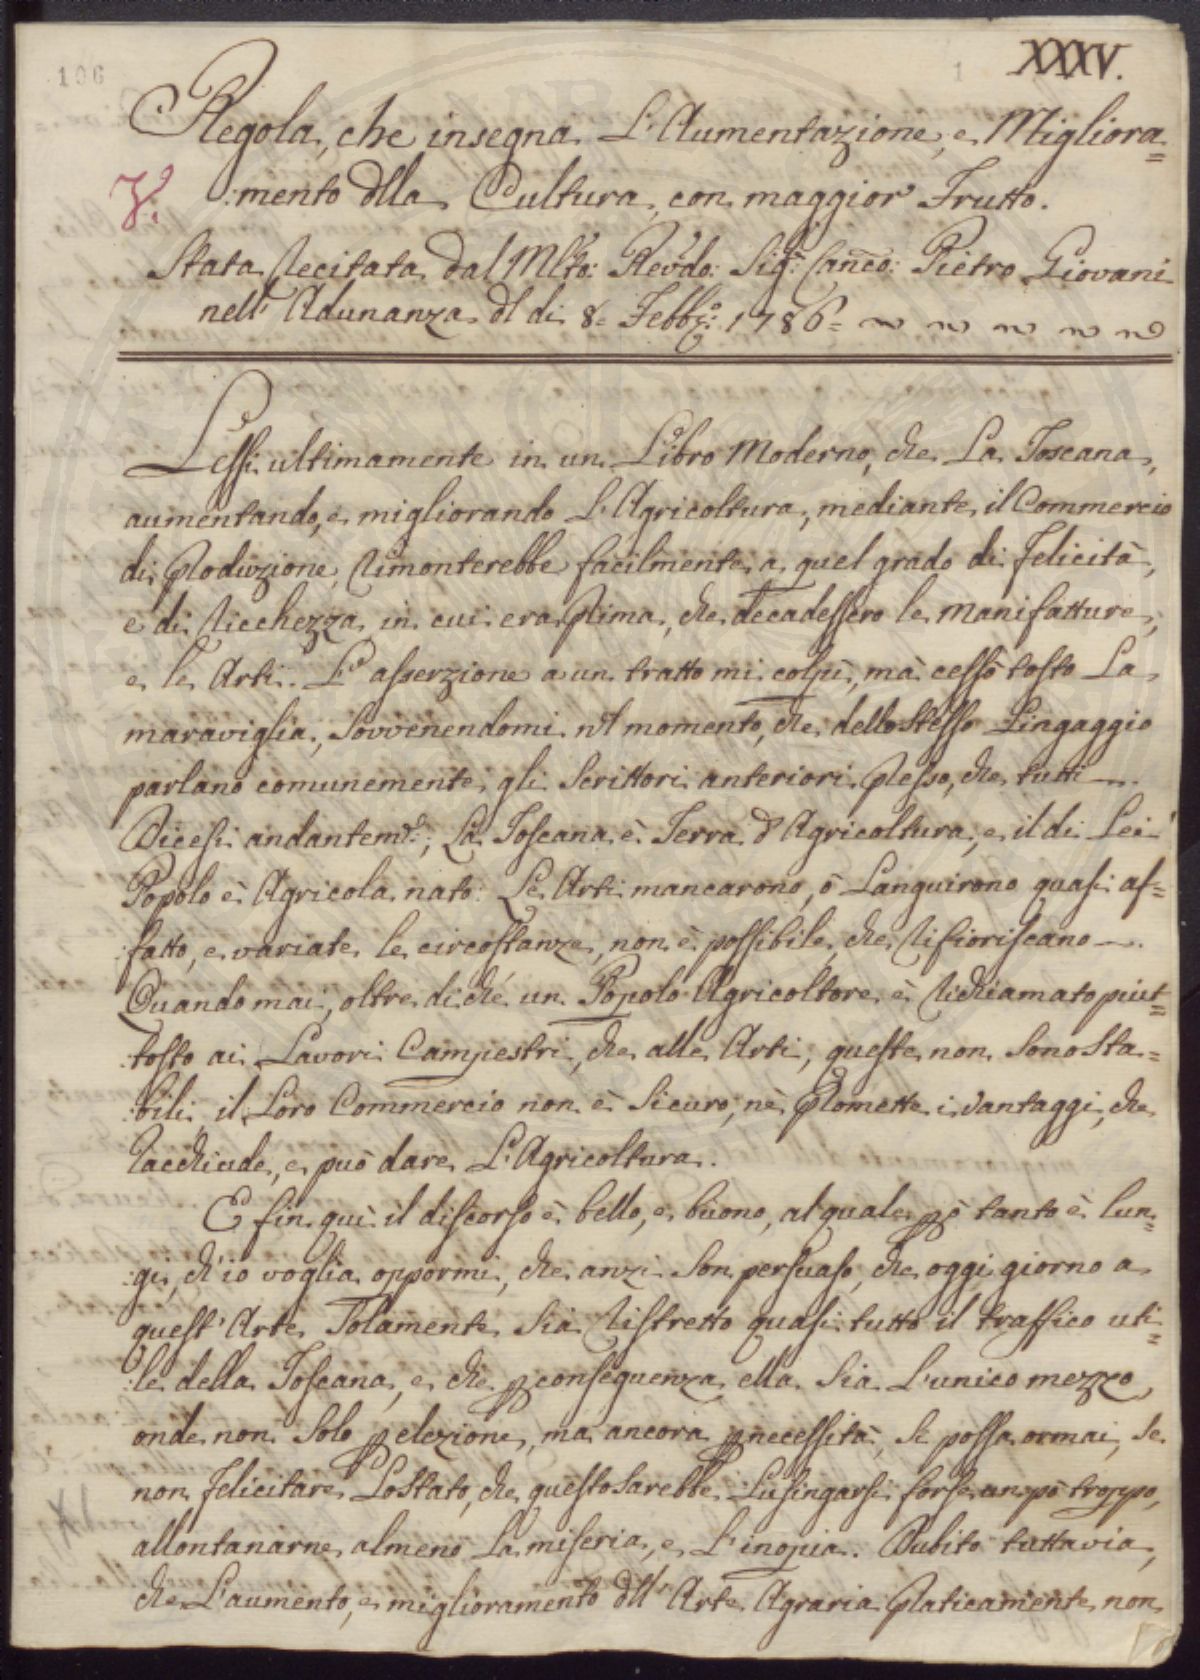 106
1 XXXV.
Regola, che insegna L'Aumentazione, e Migliora=
:mento dlla Cultura, con maggior Frutto.
Stata recitata dal Mlto: Revdo: Sigr: Canco: Pietro Giovani
nell' Adunanza dl di 8= Febbr: 1786=
Lessi ultimamente in un Libro Moderno, che La Toscana,
aumentando, e migliorando L'Agricoltura, mediante il Commercio
di Produzione, rimonterebbe facilmente a quel grado di felicità,
e di ricchezza in cui era prima, che decadessero le Manifatture,
e le Arti. L' asserzione a un tratto mi colpì, mà cessò tosto La
maraviglia, sovvenendomi nl momento, che dello stesso Lingaggio
parlano comunemente gli Scrittori anteriori presso, che tutti
Dicesi andantemte: La Toscana è Terra d' Agricoltura, e il di Lei
Popolo è Agricola nato: Le Arti mancarono, ò Languirono quasi af=
:fatto, e variate le circostanze, non è possibile, che rifioriscano
Quando mai, oltre di che un Popolo Agricoltore è richiamato piut=
:tosto ai Lavori Campestri, che alle Arti, queste non sono sta=
:bili, il Loro Commercio non è sicuro, nè promette i vantaggi, che
racchiude, e può dare L'Agricoltura.
E fin quì il discorso è bello, e buono, al quale però tanto è lun=
:gi, ch'io voglia oppormi, che anzi son persuaso, che oggi giorno a
quest' Arte solamente sia ristretto quasi tutto il traffico uti=
:le della Toscana, e che p conseguenza ella sia L'unico mezzo,
onde non solo p elezione, ma ancora p necessità, se possa ormai, se
non felicitare Lo stato, che questo sarebbe Lusingarsi forse un pò troppo,
allontanarne almeno La miseria, e L'inopia. Dubito tuttavia,
che L'aumento, e miglioramento dll' Arte Agraria praticamente non